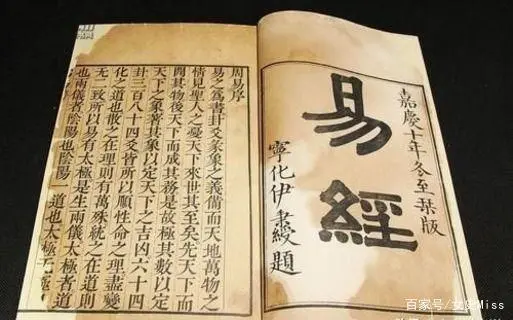 嘉慶十年冬至栞版
易經
寧化伊秉綬題
周易序
易之為書卦爻彖象之義備而天地萬物之
情見聖人之憂天下來世其至矣先天下而
開其物後天下而成其務是故極其數以定
天下之象著其象以定天下之吉凶六十四
卦三百八十四爻皆所以順性命之理盡變
化之道也散之在理則有萬殊統之在道則
无二致所以易有太極是生兩儀太極者道
也兩儀者陰陽也陰陽一道也太極无極
百家号/女史Miss